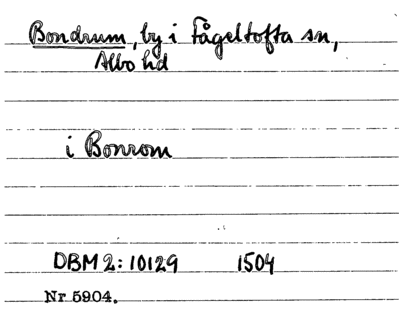 Bondrum, by i Fågeltofta sn,
Albo hd
i Bonrom
DBM 2: 10129 1504
Nr 5904.